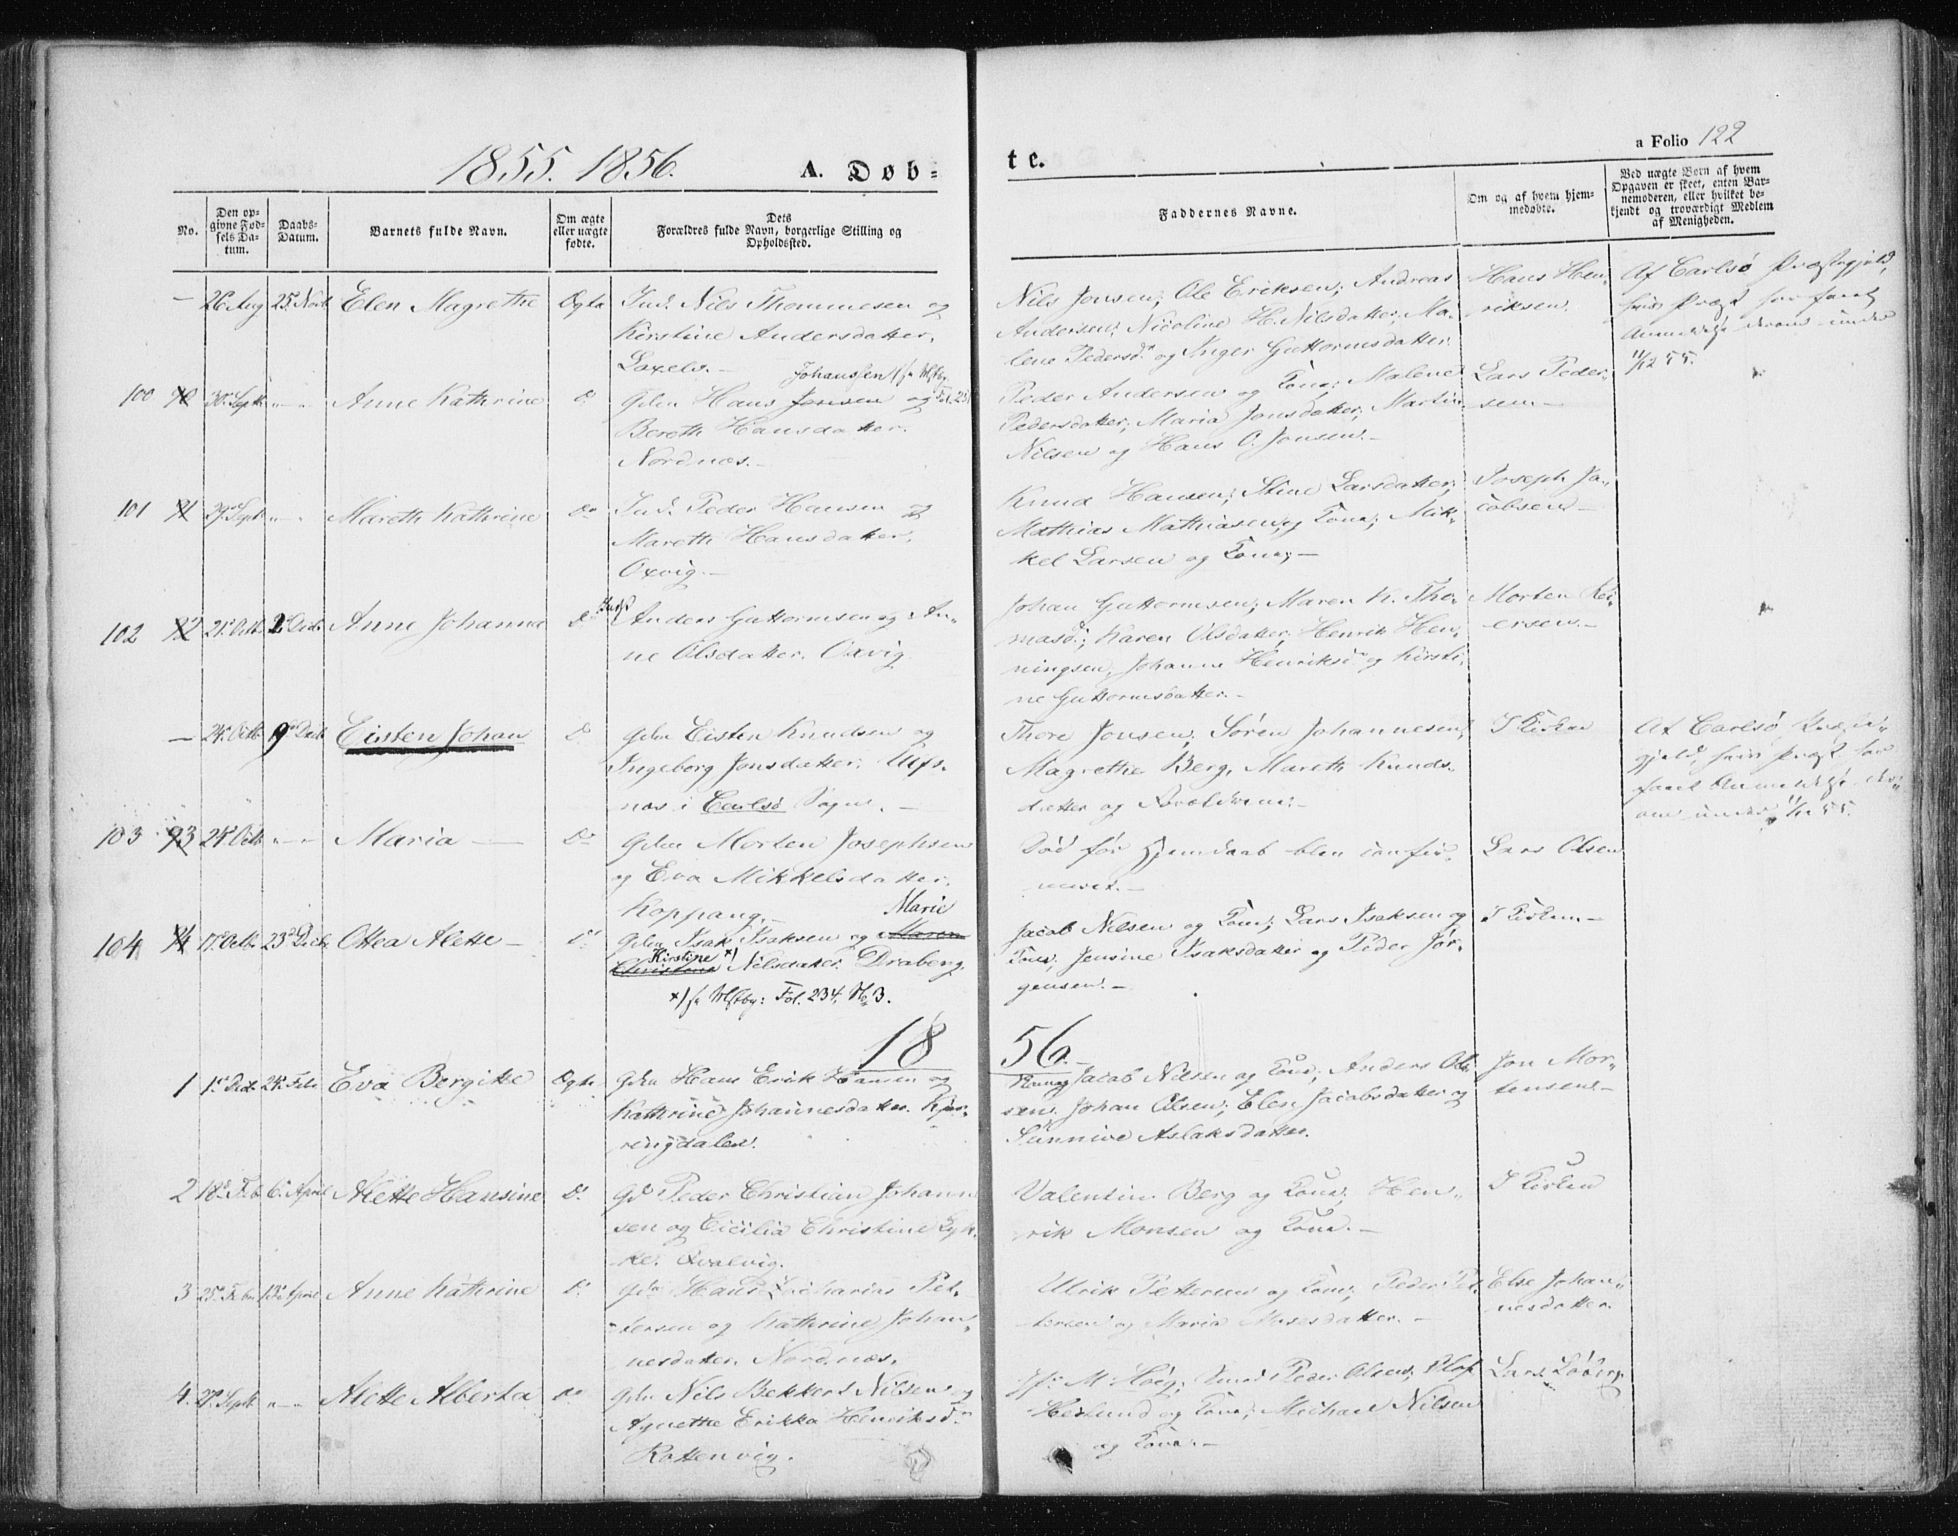 1855. 1856.
A. Døb-
te.
a Folio 122
No.
Den op-
givne Fød-
sels Da-
tum.
Daabs-
Datum.
Barnets fulde Navn.
Om ægte
eller uægte
fødte.
Dets
Forældres fulde Navn, borgerlige Stilling og
Opholdssted.
Faddernes Navne.
Om og af hvem hjem-
medøbte.
Ved uægte Børn af hvem
Opgaven er skeet, enten Bar-
nemoderen, eller hvilket be-
kjendt og troværdigt Medlem
af Menigheden.
— 26 Aug 25 Novb Elen Magrethe Ægte Ind. Nils Thommesen og
Kirstine Andersdatter.
Laxelv.
Nils Jonsen; Ole Eriksen; Andreas
Andersen; Nicoline H. Nilsdatter; Ma-
lene Pedersd. og Inger Guttormsdatter.
Hans Hen-
riksen.
Af Carlsø Præstegjeld,
11/12 55.
100 30 Sept. Anne Kathrine Gdm Hans Jonsen og
Johanssen
Bereth Hansdatter.
Nordnæs.
Peder Andersen og Kone; Malene
Pedersdatter; Maria Jonsdatter; Martin
Nilsen og Hans O. Jonsen.
Lars Peder-
sen
101 91 29 Sept. Mareth Kathrine Do Ind. Peder Hansen og
Mareth Hansdatter.
Oxvig.
Knud Hansen; Stine Larsdatter;
Mathias Mathiasen og Kone; Mik-
kel Larsen og Kone;
Joseph Ja-
cobsen
102 92 21 Octb. 2 Decb. Anne Johanna Do Anders Guttormsen og An-
ne Olsdatter. Oxvig
Johan Guttormsen; Maren N. Tho-
masd.; Karen Olsdatter; Henrik Hen-
ningsen; Johanne Henriksd. og Kirsti-
ne Guttormsdatter.
Morten Rei-
ersen.
— 24 Octb. 9 Decb Eisten Johan Do Gdm Eisten Knudsen og
Ingeborg Jonsdatter.
næs i Carlsø Sogn.
Thore Jonsen; Søren Johannesen;
Magrethe Berg, Mareth Knuds-
datter og Forældrene.
I Kirken
Af Carlsø Præste-
gjeld, hvis Præst har
11/12 55.
103 93 24 Octb. Maria Do Gdm Morten Josephsen
og Eva Mikkelsdatter.
Koppang.
Død før Hjemdaab blev confir-
meret.
Lars Olsen
104 94 17 Octb. 23 Decb. Ottea Alette Do Gdm Isak Isaksen og Maren
Marie
Christine Nilsdatter. Draberg.
Kirstine x)
x) Fol. 234, No 3.
Jacob Nilsen og Kone; Lars Isaksen og
Kone, Jensine Isaksdatter og Peder Jør-
gensen.
I Kirken
1856.
1 1 Decb. 24 Feb. Eva Bergitte Ægte Gdm Hans Erik Hansen og
Kathrine Johannesdatter. Kjær-
ringdalen.
Jacob Nilsen og Kone; Anders Ol-
sen. Johan Olsen; Elen Jacobsdatter og
Sunnive Aslaksdatter.
Jon Mor-
tensen
2 18 Feb 6 April Alette Hansine Do Gd Peder Christian Johann
sen og Cicilia Christine Lyk-
ke. Qvalvig.
Valentin Berg og Kone; Hen-
rik Monsen og Kone.
I Kirken
3 25 Febr 13 April Anne Kathrine Do Gd Hans Zacharias Pet-
tersen og Kathrine Johan-
nesdatter. Nordnæs.
Ulrik Pettersen og Kone; Peder Pet-
tersen og Maria Mosesdatter.
Else Johan-
nesdatter.
4 27 Septb Alette Alberta Do Gdm Nils Bekkert Nilsen og
Agnethe Erikka Henriksd.
Rottenvig.
M. Høeg; Peder Olsen, Olof
Heilund og Kone; Michael Nilsen
og Kone.
Lars